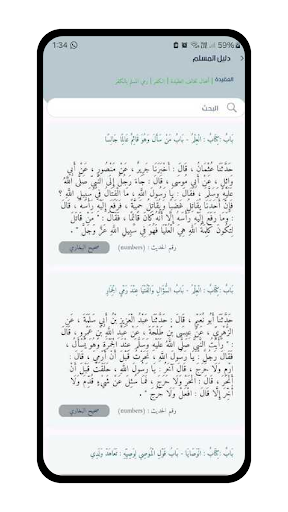 1:34 59%
دليل المسلم
العقيدة
البحث
بَابُ : كِتَابُ : العِلْمِ - بَابُ مَنْ سَأَلَ وَهُوَ قَائِمٌ عَالِمًا جَالِسًا
حَدَّثَنَا عُثْمَانُ ، قَالَ : أَخْبَرَنَا جَرِيرٌ ، عَنْ مَنْصُورٍ ، عَنْ أَبِي
وَائِلٍ ، عَنْ أَبِي مُوسَى ، قَالَ : جَاءَ رَجُلٌ إِلَى النَّبِيِّ صَلَّى اللَّهُ
عَلَيْهِ وَسَلَّمَ ، فَقَالَ : يَا رَسُولَ اللَّهِ ، مَا القِتَالُ فِي سَبِيلِ اللَّهِ ؟
فَإِنَّ أَحَدَنَا يُقَاتِلُ غَضَبًا وَيُقَاتِلُ حَمِيَّةً ، فَرَفَعَ إِلَيْهِ رَأْسَهُ ، قَالَ
: وَمَا رَفَعَ إِلَيْهِ رَأْسَهُ إِلَّا أَنَّهُ كَانَ قَائِمًا ، فَقَالَ : " مَنْ قَاتَلَ
لِتَكُونَ كَلِمَةُ اللَّهِ هِيَ العُلْيَا فَهُوَ فِي سَبِيلِ اللَّهِ عَزَّ وَجَلَّ " .
رقم الحديث : (numbers) صحيح البخاري
بَابُ : كِتَابُ : العِلْمِ - بَابُ السُّؤَالِ وَالفُتْيَا عِنْدَ رَمْيِ الجِمَارِ
حَدَّثَنَا أَبُو نُعَيْمٍ ، قَالَ : حَدَّثَنَا عَبْدُ العَزِيزِ بْنُ أَبِي سَلَمَةَ ، عَنِ
الزُّهْرِيِّ ، عَنْ عِيسَى بْنِ طَلْحَةَ ، عَنْ عَبْدِ اللَّهِ بْنِ عَمْرٍو ، قَالَ
: رَأَيْتُ النَّبِيَّ صَلَّى اللَّهُ عَلَيْهِ وَسَلَّمَ عِنْدَ الجَمْرَةِ وَهُوَ يُسْأَلُ ،
فَقَالَ رَجُلٌ : يَا رَسُولَ اللَّهِ ، نَحَرْتُ قَبْلَ أَنْ أَرْمِيَ ، قَالَ :
ارْمِ وَلَا حَرَجَ ، قَالَ آخَرُ : يَا رَسُولَ اللَّهِ ، حَلَقْتُ قَبْلَ أَنْ
أَنْحَرَ ، قَالَ : انْحَرْ وَلَا حَرَجَ ، فَمَا سُئِلَ عَنْ شَيْءٍ قُدِّمَ وَلَا
أُخِّرَ إِلَّا قَالَ : افْعَلْ وَلَا حَرَجَ " .
رقم الحديث : (numbers) صحيح البخاري
بَابُ : كِتَابُ : الوَصَايَا - بَابُ قَوْلِ المُوصِي لِوَصِيِّهِ : تَعَاهَدْ وَلَدِي